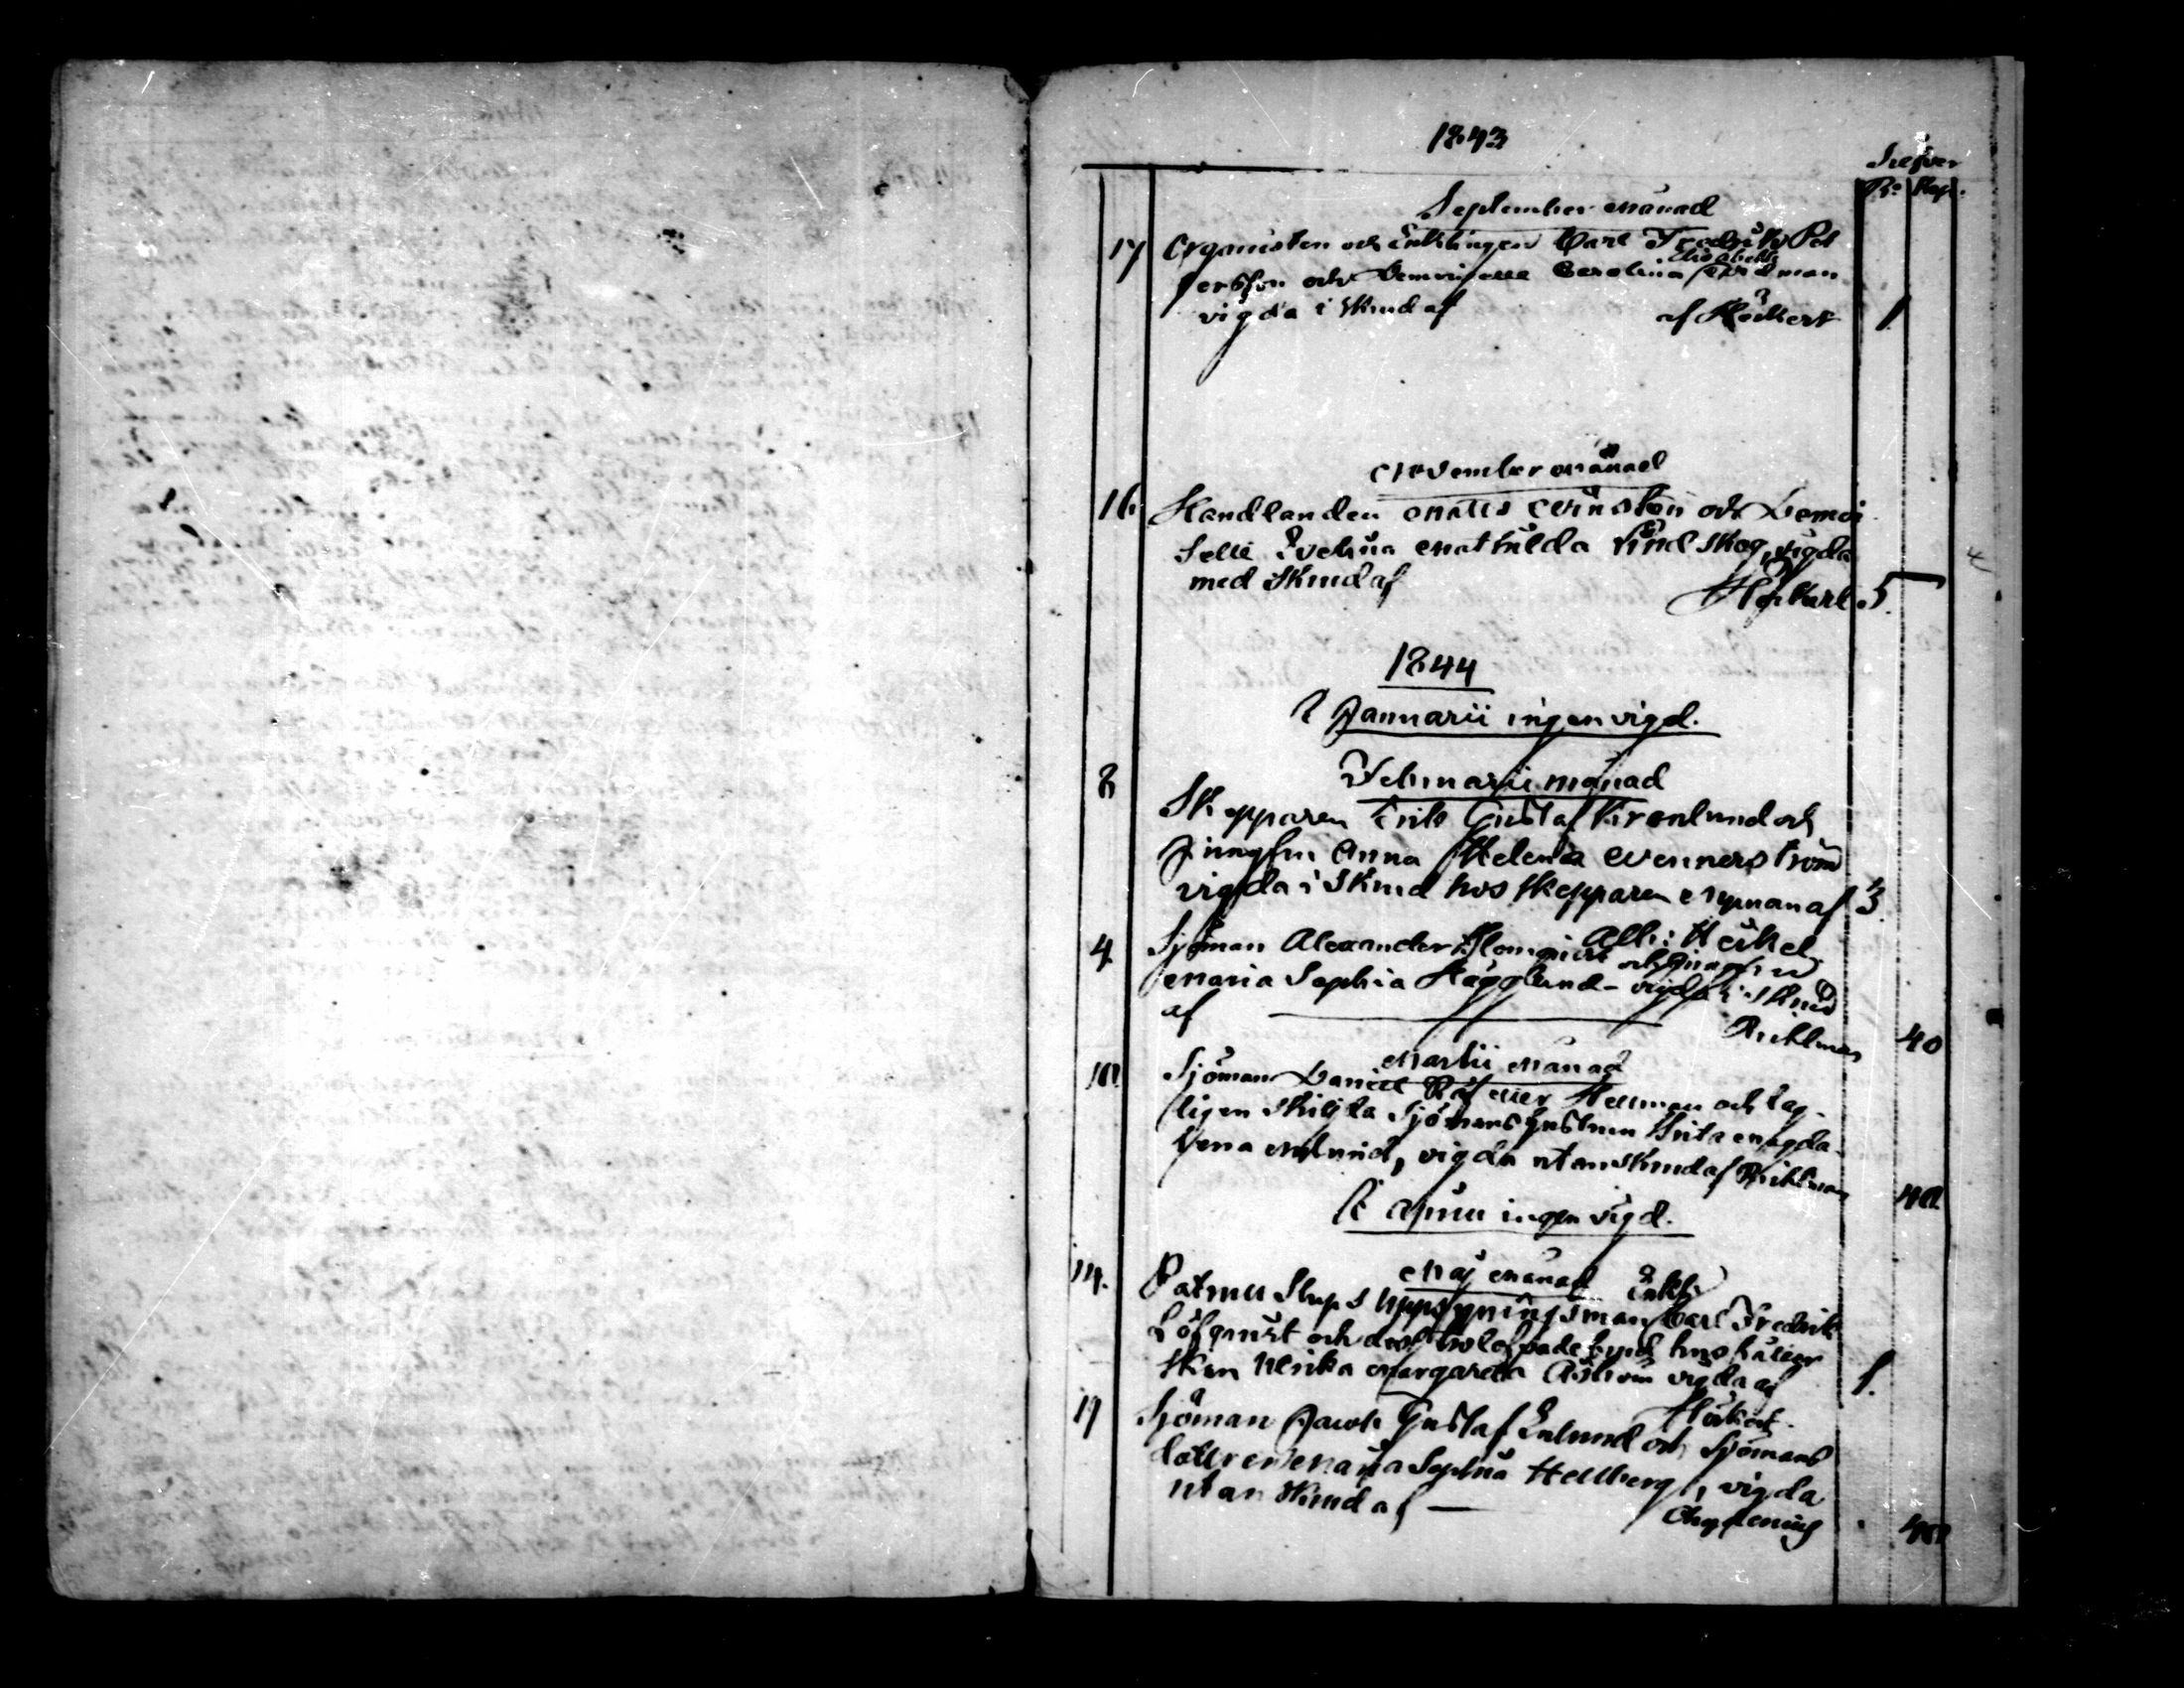 1843
Silfver
Ro Kop.
September månad
17 Organisten och Enklingen Carl Fredrik Pet
Elisabeth
ersson och Demoiselle Carolina Nordman
vigda i Skrud af af Höckert 1
November månad
16. Handlanden Matts Winsten och Demoi
selle Evelina Mathilda Lindskog, vigda
med Skrud af
Höckert 5.
1844
I Januarii ingen vigd.
8 Februarii månad
Skepparen Erik Gustaf Kronlund och
Jungfru Anna Helena Wennerström
vigda i Skrud hos Skepparen Nyman af 3.
Alb: Heikel
4 Sjöman Alexander Blomqvist och Jungfru
Maria Sophia Hägglund - vigda i Skrud
af
40
Martii månad
10 Sjöman Daniel Räf eller Hellman och lag-
ligen skiljda Sjömans hustrun Brita Magda-
lena Enlund, vigda utan Skrud af
40
I April ingen vigd.
Maj månad Enkl:
14. Patrull Slups Uppsyningsman Carl Fredrik
Löfqvist och dess trolofvade hushåller
skan Ulrika Margareta Åström vigda af 1.
Höckert.
19 Sjöman Jacob Gustaf Enlund och Sjömans
dottren Maria Sophia Hellberg, vigda
utan Skrud af —
40